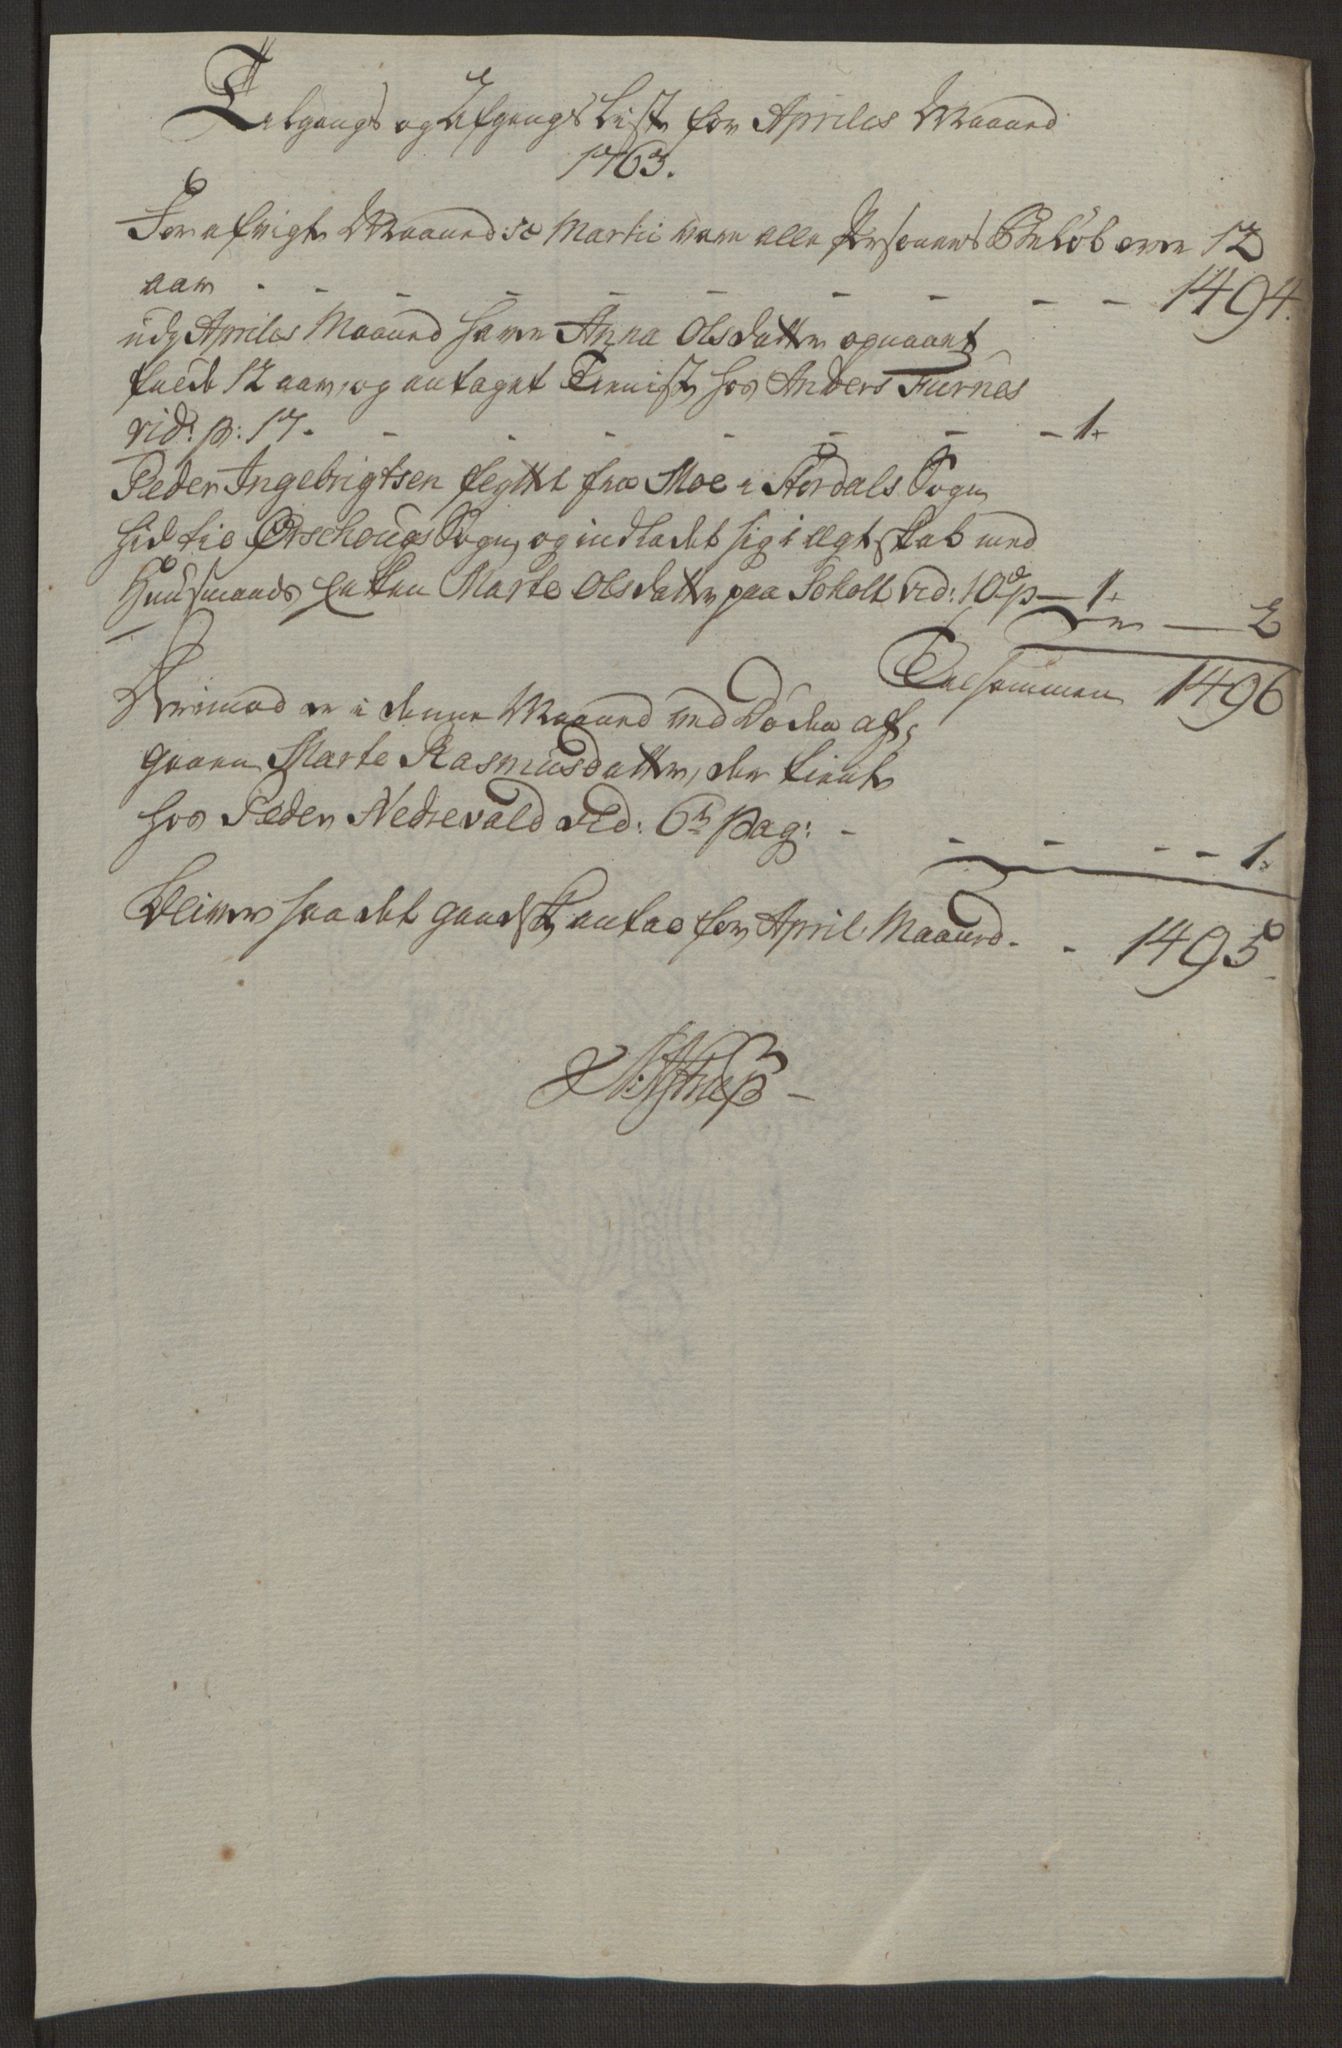 Tilgangs og Afgangs Liste for Apriles Maaned
1763.
Forafvigte Maaned sc Martii vare alle Personers Beløb over 12
aar - - - - - - - - - - 1494.
udj Apriles Maaned haver Anna Olsdatter opnaaet
fulde 12 aar, og antaget Tieniste hos Anders Furnes
vid: p: 17. - - - - - - - 1.
Peder Ingebrigtsen flyttet fra Moe i Stordals Sogn
hid til Ørschougs Sogn, og indladet sig i Ægteskab med
Huusmands Enken Marte Olsdatter paa Soholt vid: 10de p - 1.
er - 2
Tilsammen 1496
Herimod er i denne Maaned ved Døden af-
gaaen Marte Rasmusdatter, der tiente
hos Peder Nedrevold vid: 6te pag: - - - - - 1.
Bliver saa det gandske antal for April Maaned - - 1495.